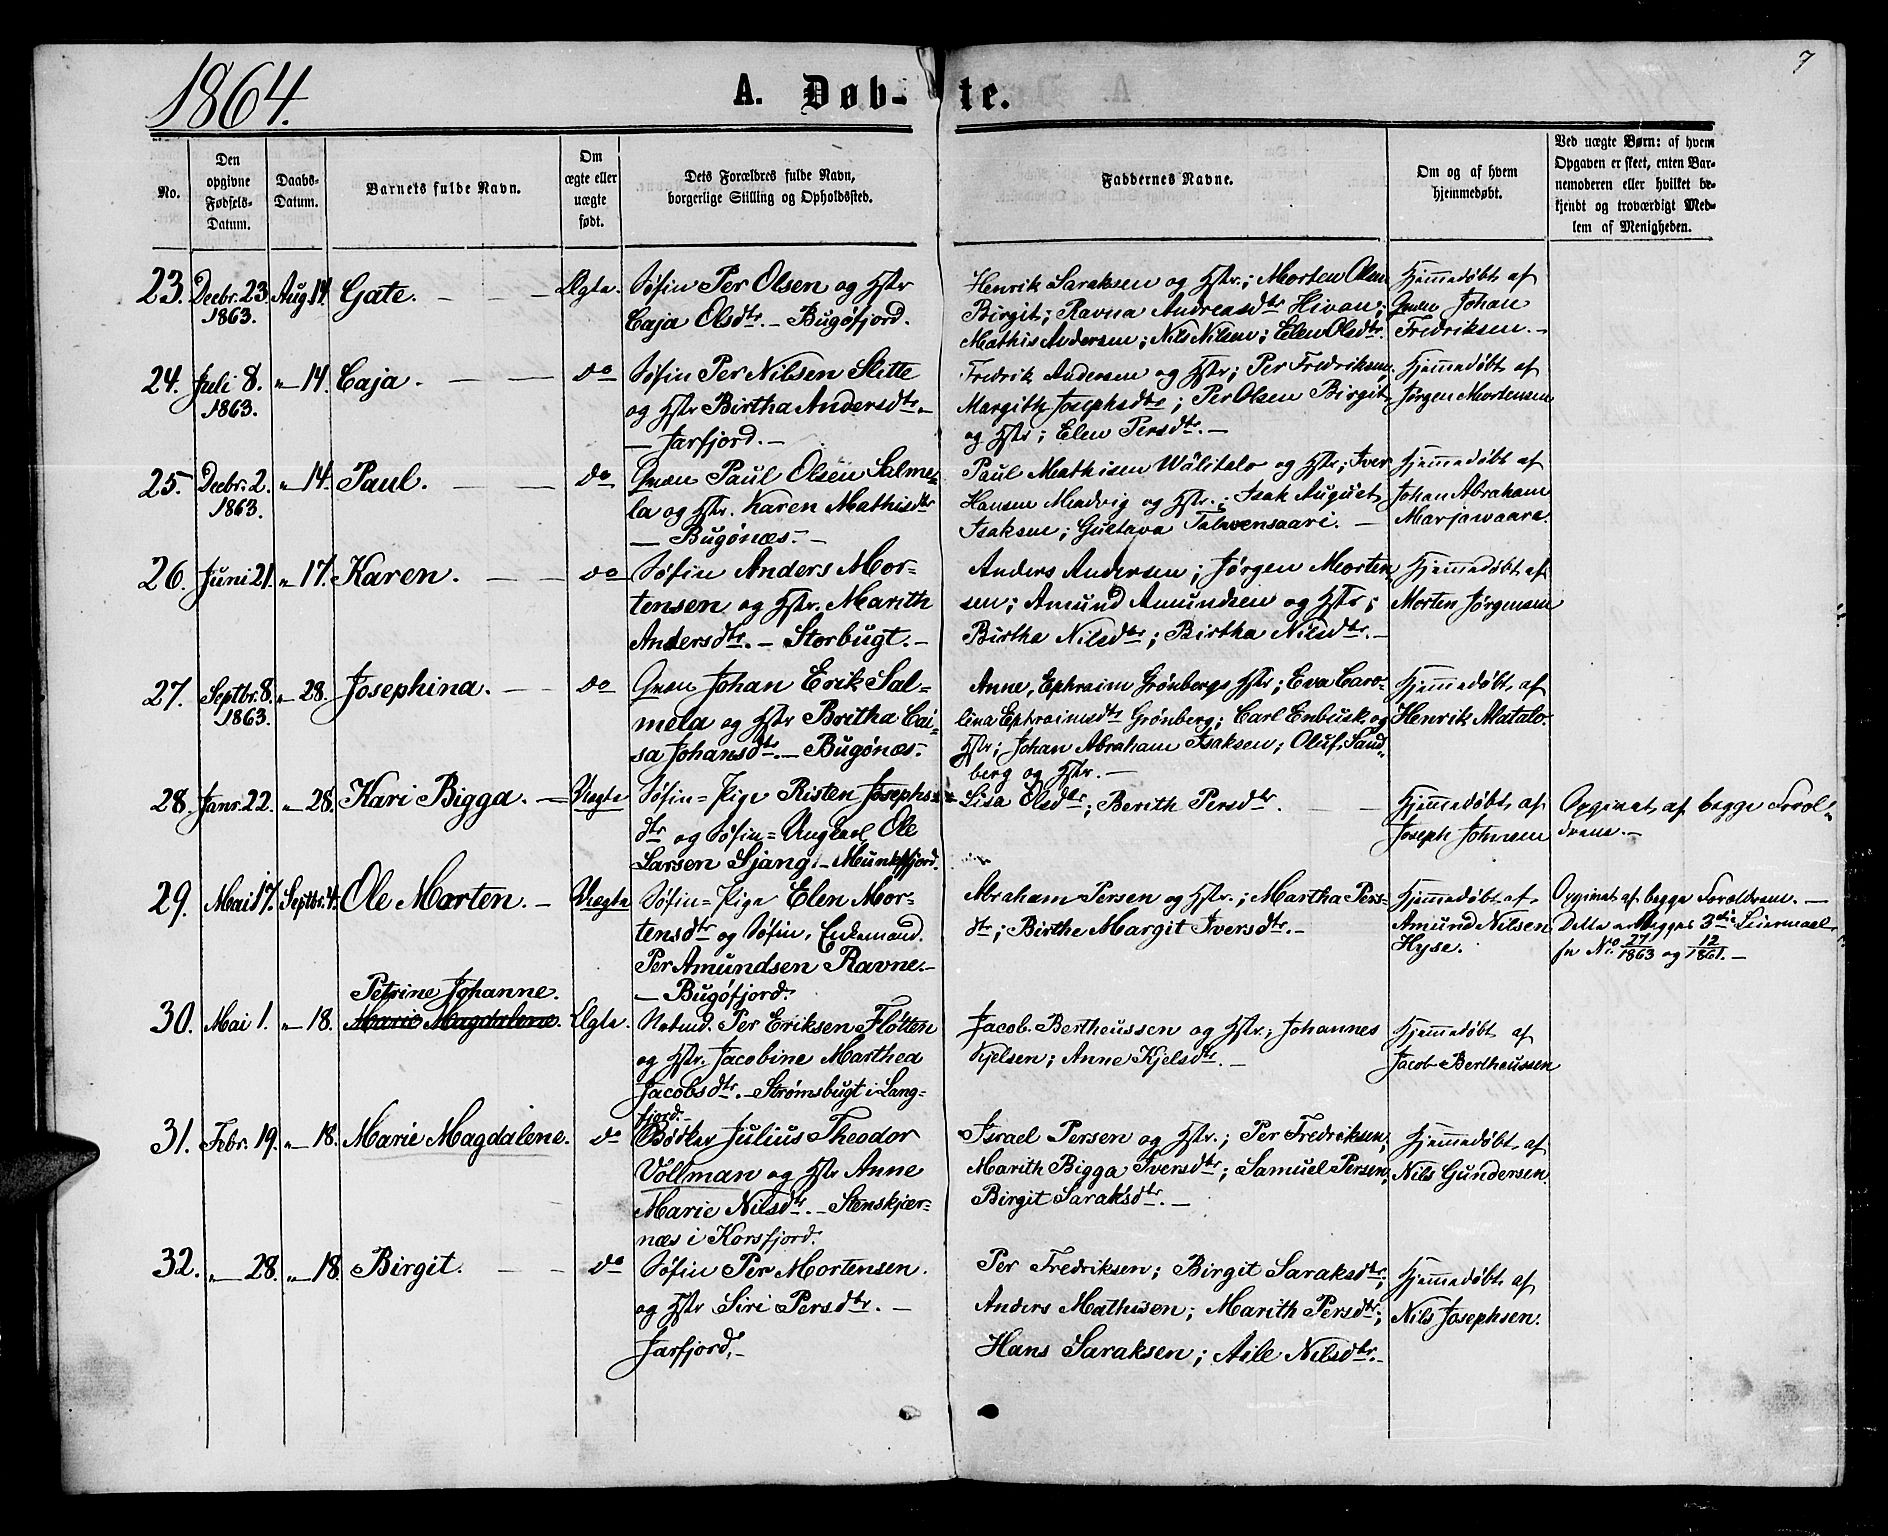 1864.
A. Døb-te.
7
No.
Den opgivne Fødsels-Datum.
Daabs-Datum.
Barnets fulde Navn.
Om ægte eller uægte født.
Dets Forældres fulde Navn, borgerlige Stilling og Opholdssted.
Faddernes Navne.
Om og af hvem hjemmedøbt.
Ved uægte Børn: af hvem Opgaven er skeet, enten Barnemoderen eller hvilket bekjendt og troværdigt Medlem af Menigheden.
23. Decbr. 23 1863. Aug. 14. Gate. Ægte.
Søfin Per Olsen og Hstr
Caja Olsdtr. - Bugøfjord.
Henrik Saraksen og Hstr.; Morten Olsen
Birgit; Ravna Andreasdtr Hivan;
Mathis Andersen; Nils Nilsen; Elen Olsdtr.
Hjemmedøbt af
Qvæn Johan
Fredriksen. -
24. Juli 8. 1863. " 14. Caja. do
Søfin Per Nilsen Slitte
og Hstr Birtha Andersdtr. -
- Jarfjord. -
Fredrik Andersen og Hstr; Per Fredriksen,
Margith Josephsdtr; Per Olsen Birgit
og Hstr; Elen Persdtr. -
Hjemmedøbt af
Jørgen Mortensen
25. Decbr. 2. 1863. " 14. Paul. do
Qvæn Paul Olsen Salme-
la og Hstr. Karen Mathisdtr
- Bugønæs. -
Paul Mathisen Wälitalo og Hstr; Iver
Hansen Madvig og Hstr.; Isak August
Isaksen; Gustava Talvensaari. -
Hjemmedøbt af
Johan Abraham
Marjawaara.
26. Juni 21. " 17. Karen. do
Søfin Anders Mor-
tensen og Hstr. Marith
Andersdtr. - Storbugt. -
Anders Andersen; Jørgen Morten
sen; Amund Amundsen og Hstr;
Birtha Nilsdtr; Birtha Nilsdtr. -
Hjemmedøbt af
Morten Jørgensen
27. Septbr. 8. 1863. " 28. Josephina. do
Qvæn Johan Erik Sal-
mela og Hstr Britha Cai-
sa Johansdtr. - Bugønæs. -
Anne, Ephraim Grønbergs Hstr; Eva Caro-
lina Ephraimsdtr Grønberg; Carl Enbusk og
Hstr; Johan Abraham Isaksen; Oluf Sand-
berg og Hstr. -
Hjemmedøbt af
Henrik Alatalo.
28. Janr. 22. " 28. Kari Bigga. Uægte
Søfin=Pige Risten Josephs-
dtr og Søfin=Ungkarl Ole
Larsen Sjang. - Munkefjord.
Lisa Olsdtr; Berith Persdtr.
Hjemmedøbt af
Joseph Johnsen
Opgivet af begge Foræl-
drene. -
29. Mai 17. Septbr. 4. Ole Morten. Uægte
Søfin=Pige Elen Mor-
tensdtr og Søfin, Enkemand
Per Amundsen Ravne. -
- Bugøfjord.
Abraham Persen og Hstr.; Martha Pers-
dtr; Birthe Margit Iversdtr. -
Hjemmedøbt af
Amund Nilsen
Hyse.
Opgivet af begge Forældrene. -
Dette er Begges 3die Leiermaal
fr No. 27/1863 og 12/1861. -
30. Mai 1. " 18. Petrine Johanne.
Marie Magdalene. Ægte.
Nordmd. Per Eriksen Fløtten
og Hstr. Jacobine Marthea
Jacobsdtr. - Strømsbugt i Lang-
fjord. -
Jacob Bertheussen og Hstr; Johannes
Kjelsen; Anne Kjelsdtr. -
Hjemmedøbt af
Jacob Bertheussen
31. Febr. 19. " 18. Marie Magdalene. do
Bødker Julius Theodor
Vollman og Hstr Anne
Marie Nilsdtr. - Stenskjær-
næs i Korsfjord.
Israel Persen og Hstr.; Per Fredriksen,
Marith Bigga Iversdtr; Samuel Persen,
Birgit Saraksdtr. -
Hjemmedøbt af
Nils Gundersen
32. " 28. " 18. Birgit. do
Søfin Per Mortensen
og Hstr Siri Persdtr. -
Jarfjord. -
Per Fredriksen; Birgit Saraksdtr;
Anders Mathisen; Marith Persdtr;
Hans Saraksen; Aile Nilsdtr. -
Hjemmedøbt af
Nils Josephsen.